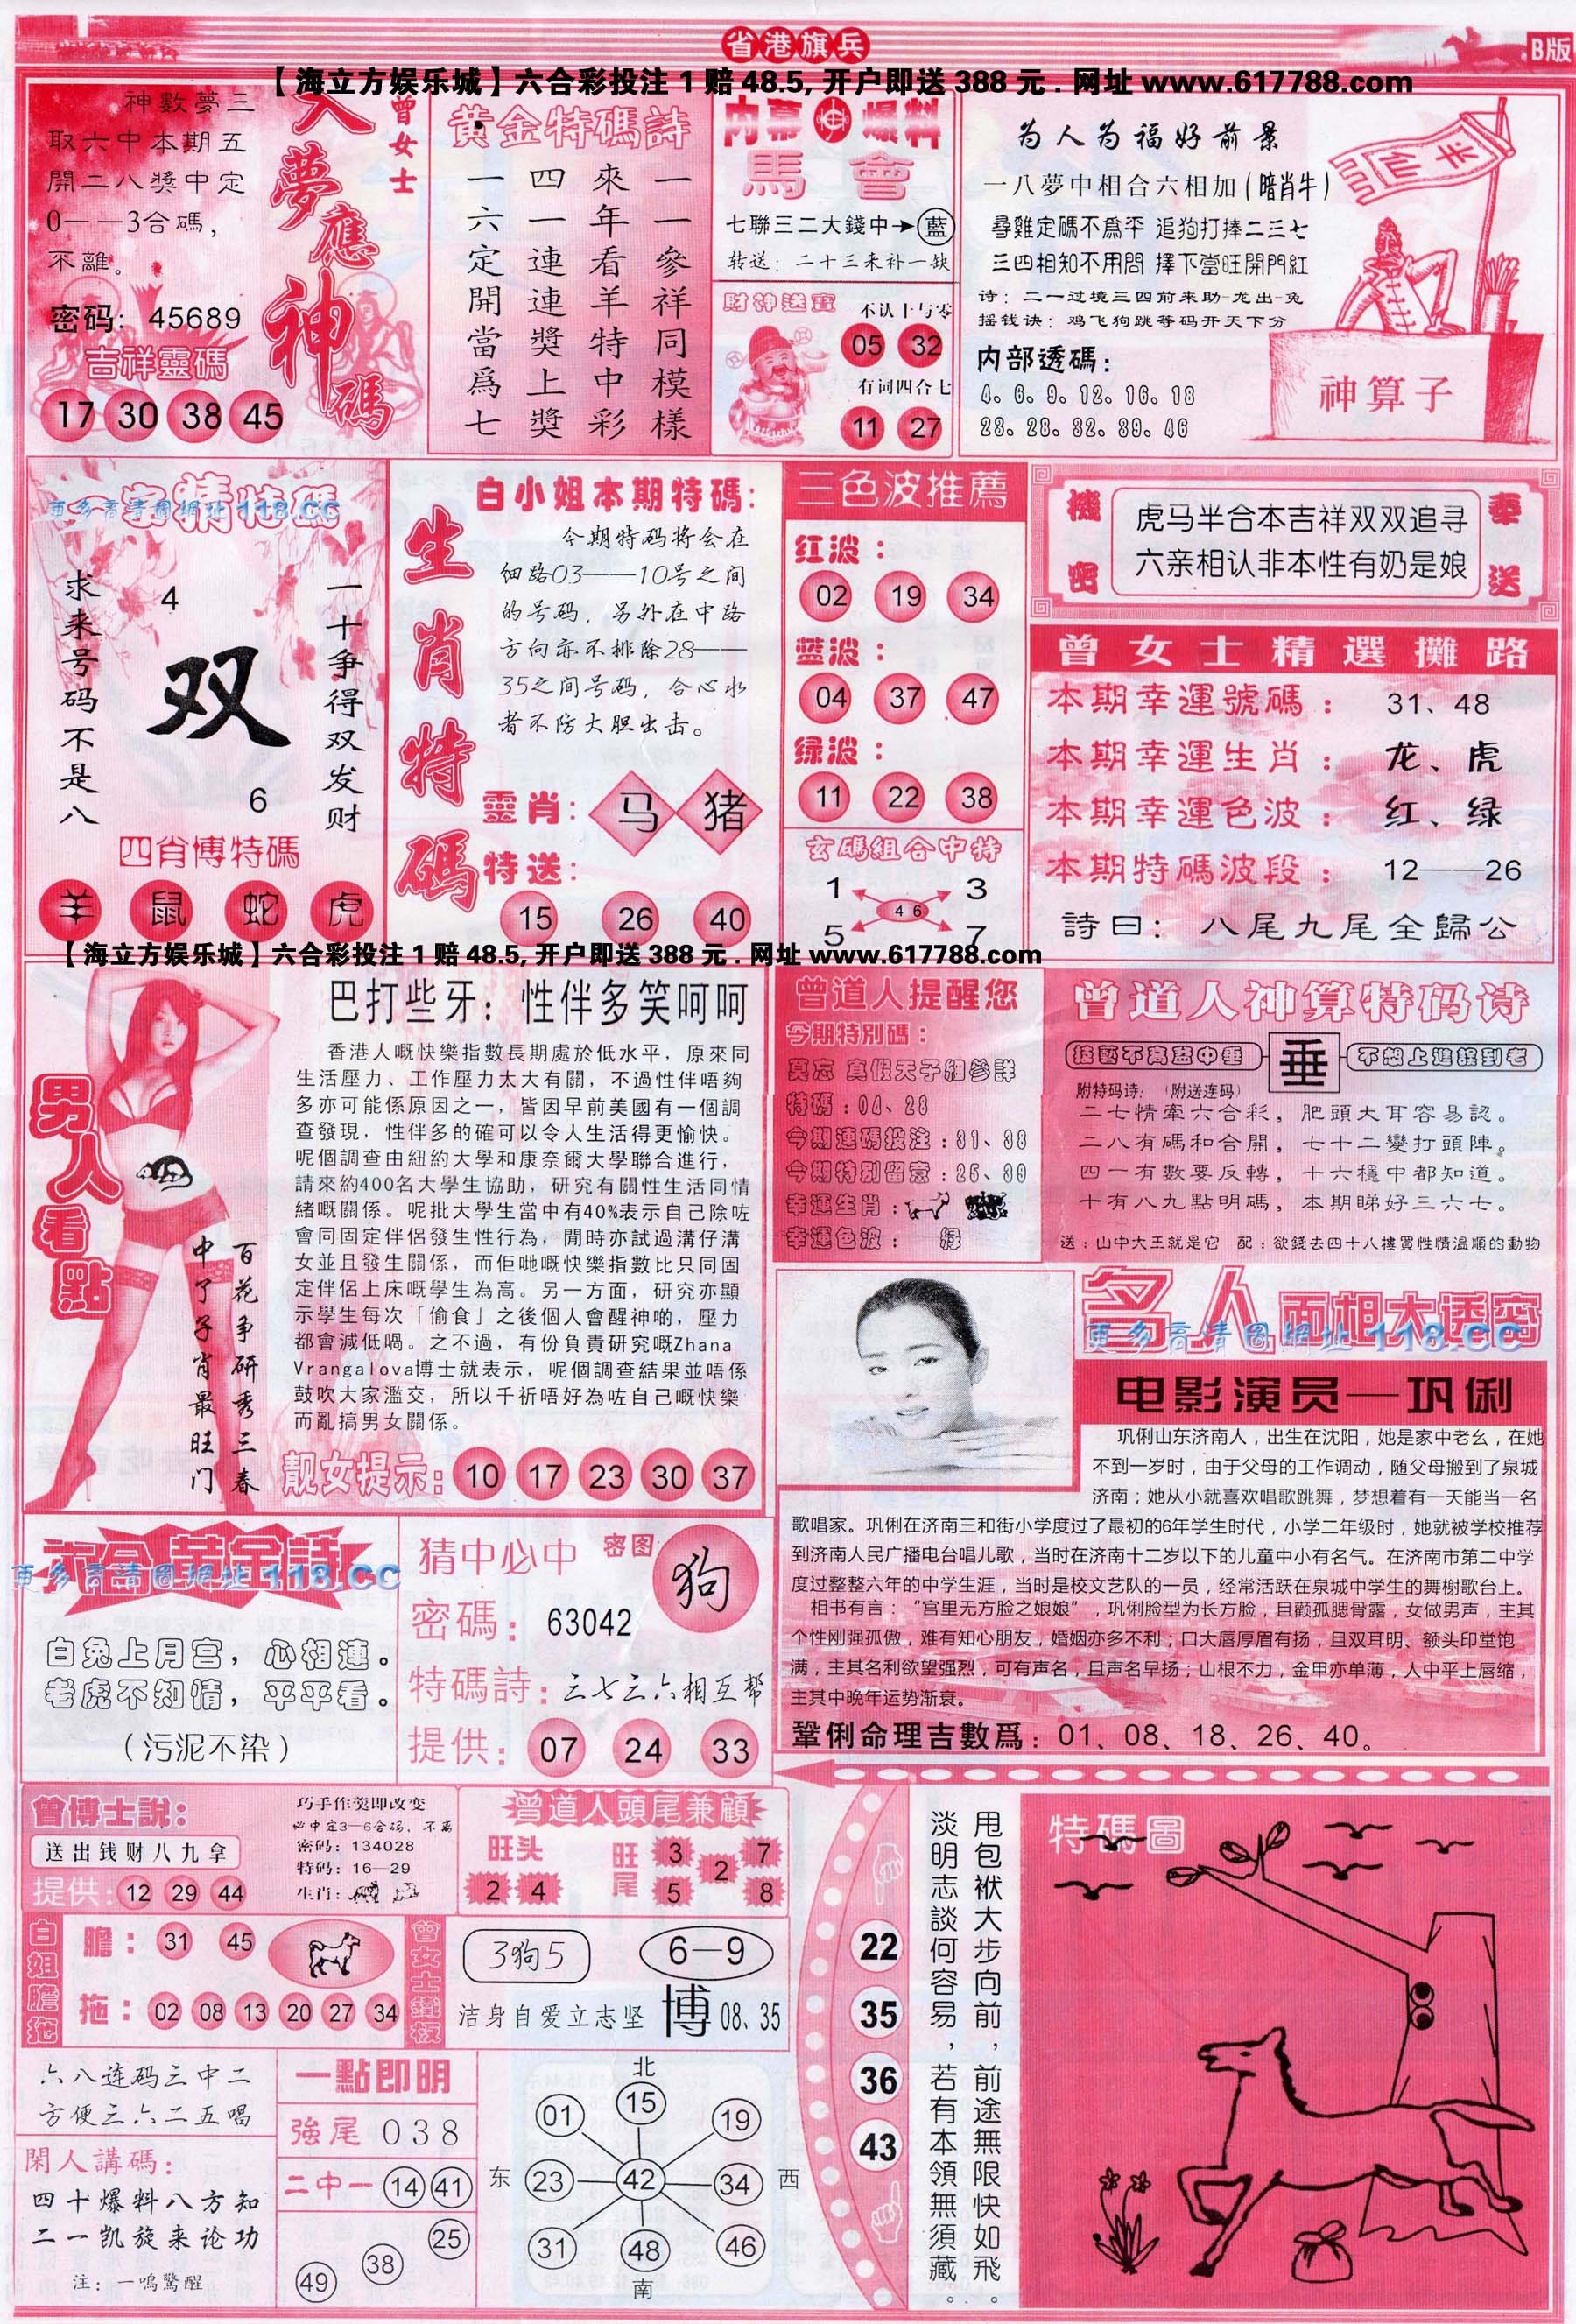 省港旗兵
B版
【海立方娱乐城】六合彩投注1赔48.5,开户即送388元.网址www.617788.com
神數夢三
取六中本期五
開二八獎中定
0——3合碼，
不離。
密码：45689
吉祥靈碼
17 30 38 45
曾女士
入夢應神碼
黄金特碼詩
一一參祥同模樣
來年看羊特中彩
四一連連獎上獎
一六定開當爲七
内幕爆料
馬會
七聯三二大錢中→藍
转送：二十三来补一缺
財神送寶
不认十与零
05 32
有词四合七
11 27
为人为福好前景
一八夢中相合六相加(暗肖牛)
尋雞定碼不爲平 追狗打捧二三七
三四相知不用問 擇下當旺開門紅
诗：二一过境三四前来助-龙出-兔
摇钱诀：鸡飞狗跳等码开天下分
内部透碼：
4。6。9。12。16。18
23。28。32。39。46
半仙
神算子
一字精特碼
更多高清圖網址118.CC
一十争得双发财
4
双
6
求来号码不是八
四肖博特碼
羊 鼠 蛇 虎
生肖特碼
白小姐本期特碼：
今期特码将会在
细路03——10号之间
的号码，另外在中路
方向亦不排除28——
35之间号码，合心水
者不防大胆出击。
靈肖：马 猪
特送：
15 26 40
三色波推薦
红波：
02 19 34
蓝波：
04 37 47
绿波：
11 22 38
玄碼組合中特
1 3
4 6
5 7
機密
虎马半合本吉祥双双追寻
六亲相认非本性有奶是娘
奉送
曾女士精選攤路
本期幸運號碼：31、48
本期幸運生肖：龙、虎
本期幸運色波：红、绿
本期特碼波段：12——26
詩曰：八尾九尾全歸公
【海立方娱乐城】六合彩投注1赔48.5,开户即送388元.网址www.617788.com
男人看點
百花争研秀三春
中了子肖最旺门
巴打些牙：性伴多笑呵呵
香港人嘅快樂指數長期處於低水平，原來同
生活壓力、工作壓力太大有關，不過性伴唔夠
多亦可能係原因之一，皆因早前美國有一個調
查發現，性伴多的確可以令人生活得更愉快。
呢個調查由紐約大學和康奈爾大學聯合進行，
請來約400名大學生協助，研究有關性生活同情
緒嘅關係。呢批大學生當中有40%表示自己除咗
會同固定伴侶發生性行為，閒時亦試過溝仔溝
女並且發生關係，而佢哋嘅快樂指數比只同固
定伴侶上床嘅學生為高。另一方面，研究亦顯
示學生每次「偷食」之後個人會醒神啲，壓力
都會減低喎。之不過，有份負責研究嘅Zhana
Vrangalova博士就表示，呢個調查結果並唔係
鼓吹大家濫交，所以千祈唔好為咗自己嘅快樂
而亂搞男女關係。
靓女提示：10 17 23 30 37
曾道人提醒您
今期特別碼：
莫忘 真假天子細參詳
特碼：04、28
今期連碼投注：31、38
今期特別留意：25、39
幸運生肖：
幸運色波：绿
曾道人神算特码诗
垂
不想上進捱到老
附特码诗：（附送连码）
二七情牽六合彩，肥頭大耳容易認。
二八有碼和合開，七十二變打頭陣。
四一有數要反轉，十六穩中都知道。
十有八九點明碼，本期睇好三六七。
送：山中大王就是它 配：欲錢去四十八樓買性情温順的動物
名人面相大透密
更多高清圖網址118.CC
电影演员—巩俐
巩俐山东济南人，出生在沈阳，她是家中老幺，在她
不到一岁时，由于父母的工作调动，随父母搬到了泉城
济南；她从小就喜欢唱歌跳舞，梦想着有一天能当一名
歌唱家。巩俐在济南三和街小学度过了最初的6年学生时代，小学二年级时，她就被学校推荐
到济南人民广播电台唱儿歌，当时在济南十二岁以下的儿童中小有名气。在济南市第二中学
度过整整六年的中学生涯，当时是校文艺队的一员，经常活跃在泉城中学生的舞榭歌台上。
相书有言：“宫里无方脸之娘娘”，巩俐脸型为长方脸，且颧孤腮骨露，女做男声，主其
个性刚强孤傲，难有知心朋友，婚姻亦多不利；口大唇厚眉有扬，且双耳明、额头印堂饱
满，主其名利欲望强烈，可有声名，且声名早扬；山根不力，金甲亦单薄，人中平上唇缩，
主其中晚年运势渐衰。
鞏俐命理吉數爲：01、08、18、26、40。
六合黄金詩
更多高清圖網址118.CC
白兔上月宫，心相連。
老虎不知情，平平看。
（污泥不染）
猜中必中 密图 狗
密碼：63042
特碼詩：三七三六相互幫
提供：07 24 33
曾博士說：
送出钱财八九拿
提供：12 29 44
巧手作羹即改变
必中定3—6合码，不离
密码：134028
特码：16—29
生肖：
曾道人頭尾兼顧
旺头
2 4
旺尾
3 7
2
5 8
白姐膽拖
膽：31 45
拖：02 08 13 20 27 34
曾女士鐵板
3狗5
6—9
洁身自爱立志坚 博 08、35
六八连码三中二
方便三六二五唱
閑人講碼：
四十爆料八方知
二一凯旋来论功
注：一鸣驚醒
一點即明
強尾 038
二中一 14 41
25
38
49
北
01 15 19
东 23 42 34 西
31 48 46
南
22
35
36
43
甩包袱大步向前，前途無限快如飛。
淡明志談何容易，若有本領無須藏。
特碼圖